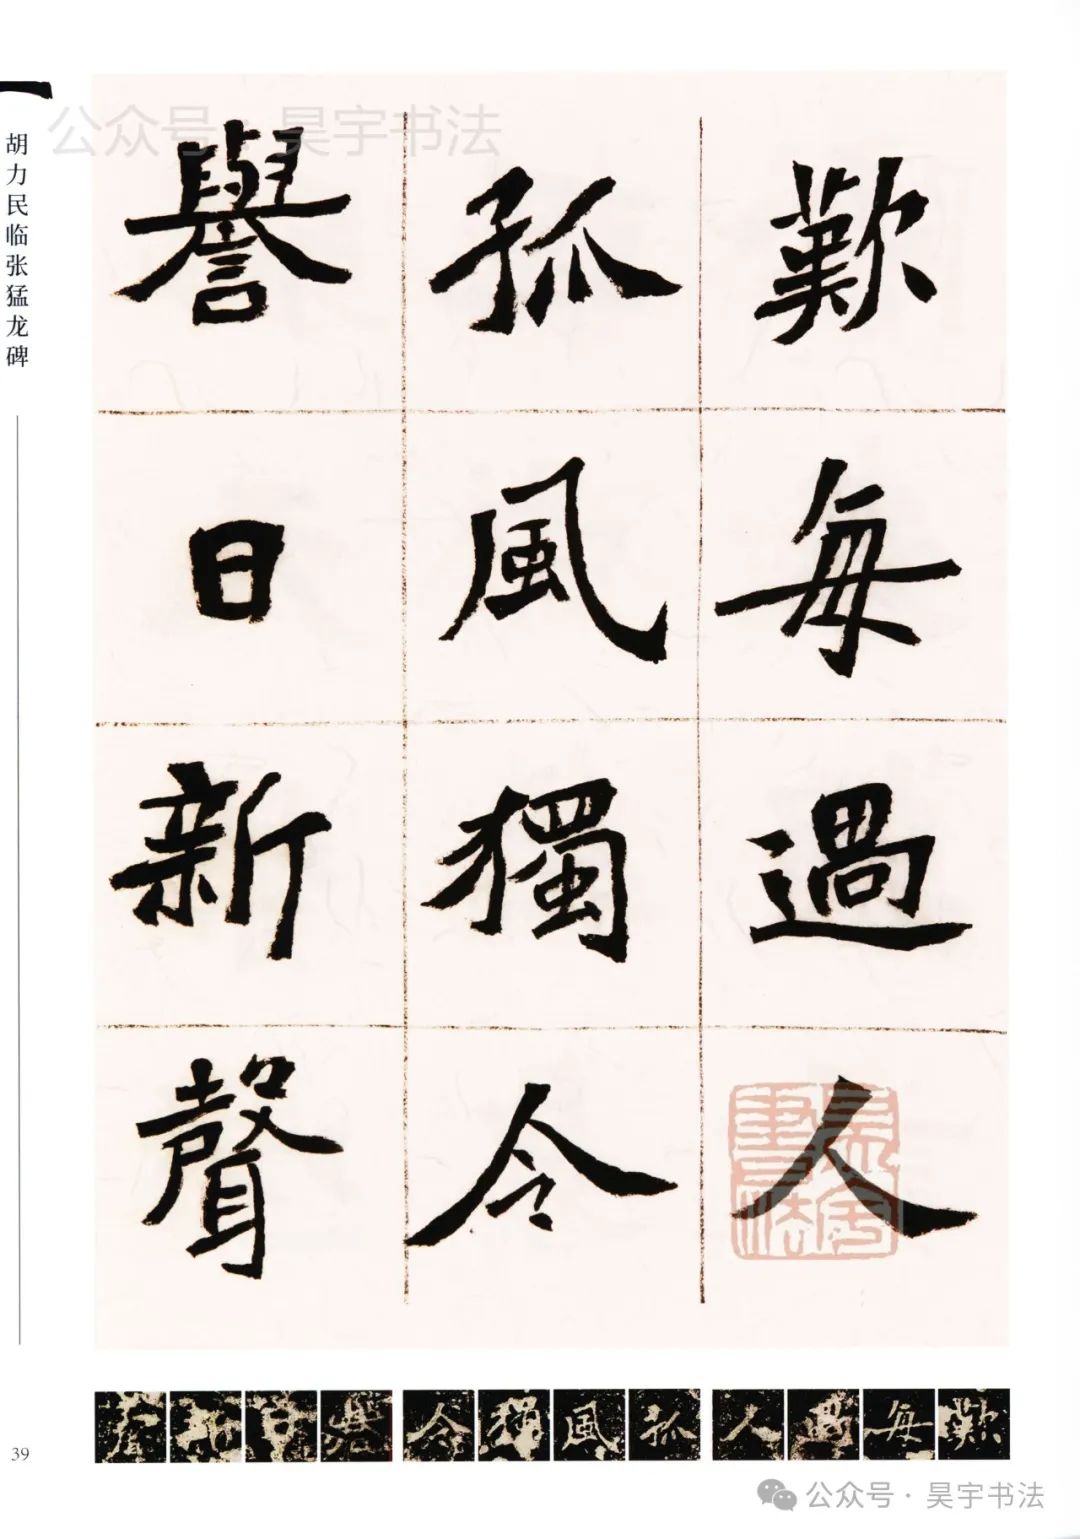 公众号·昊宇书法
胡力民临张猛龙碑
歎每過人
孤風獨令
譽日新聲
聲新日譽令獨風孤人過每歎
昊宇書法
39
公众号·昊宇书法